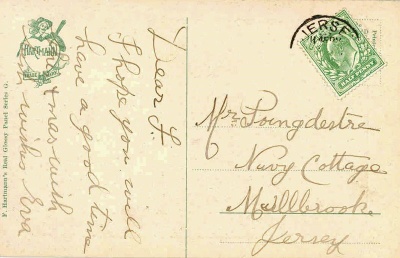 HARTMANN
Dear F.
I hope you will
have a good time
Xmas with
wishes Eva
F. Hartmann's Real Glossy Panel Series G.
JERSEY
Mrs Poingdestre
Navy Cottage
Millbrook
Jersey